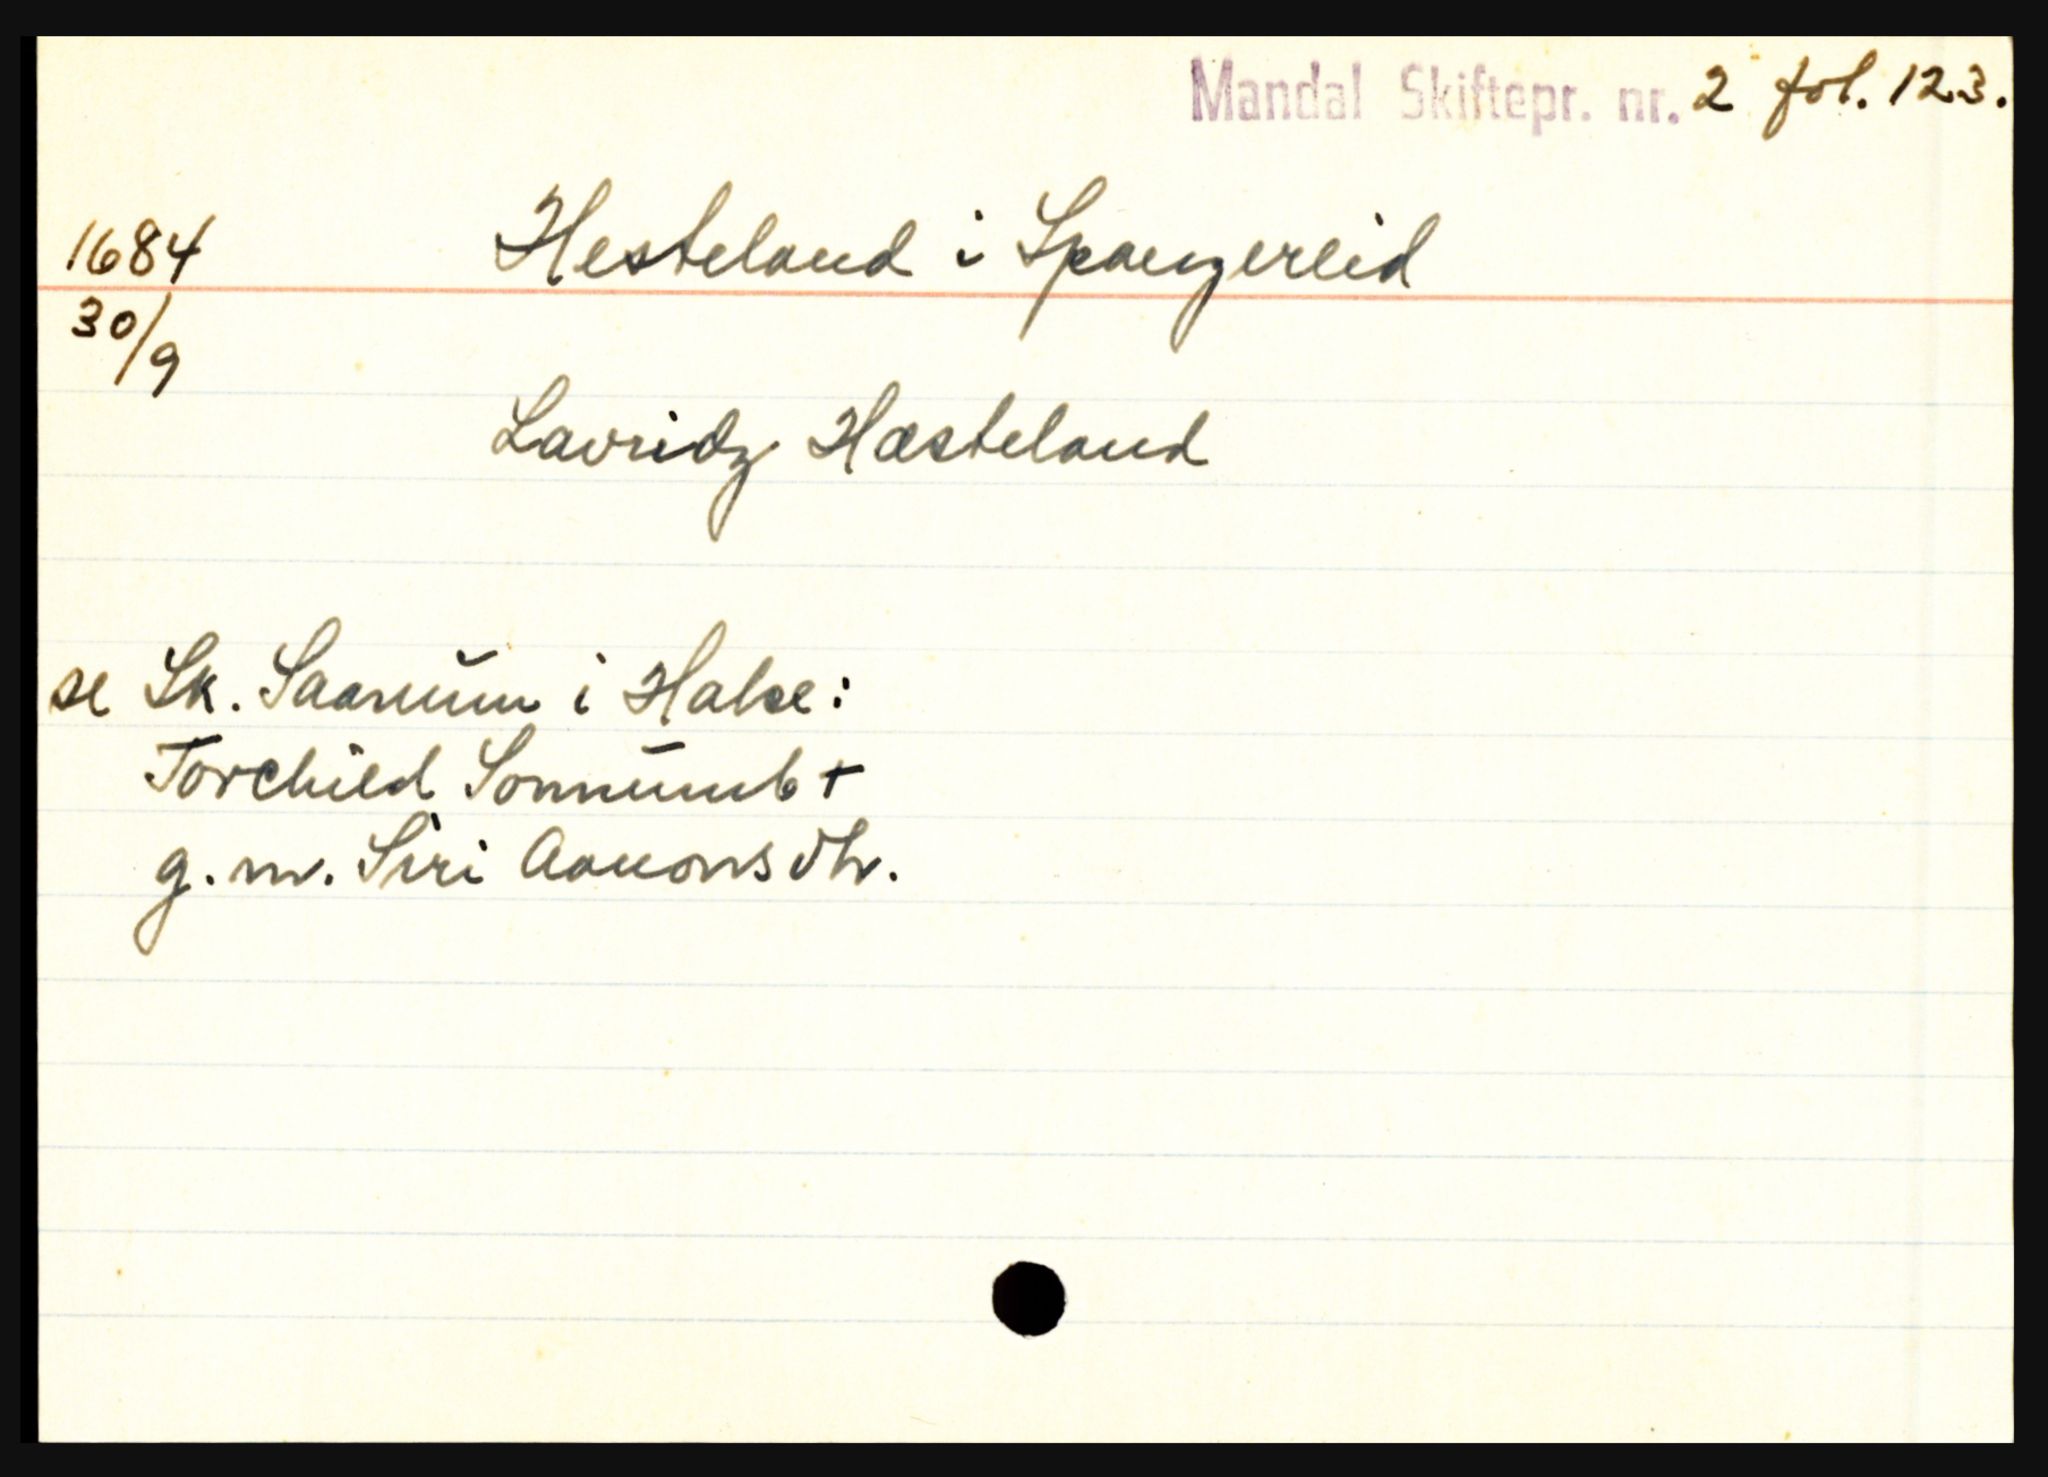 Mandal Skiftepr. nr. 2 fol. 123.
1684 Hesteland i Spangereid
30/9
Lavridz Hæsteland
se Sk. Saanum i Halse:
Torchild Sonnumb +
g.m. Siri Aanons dtr.